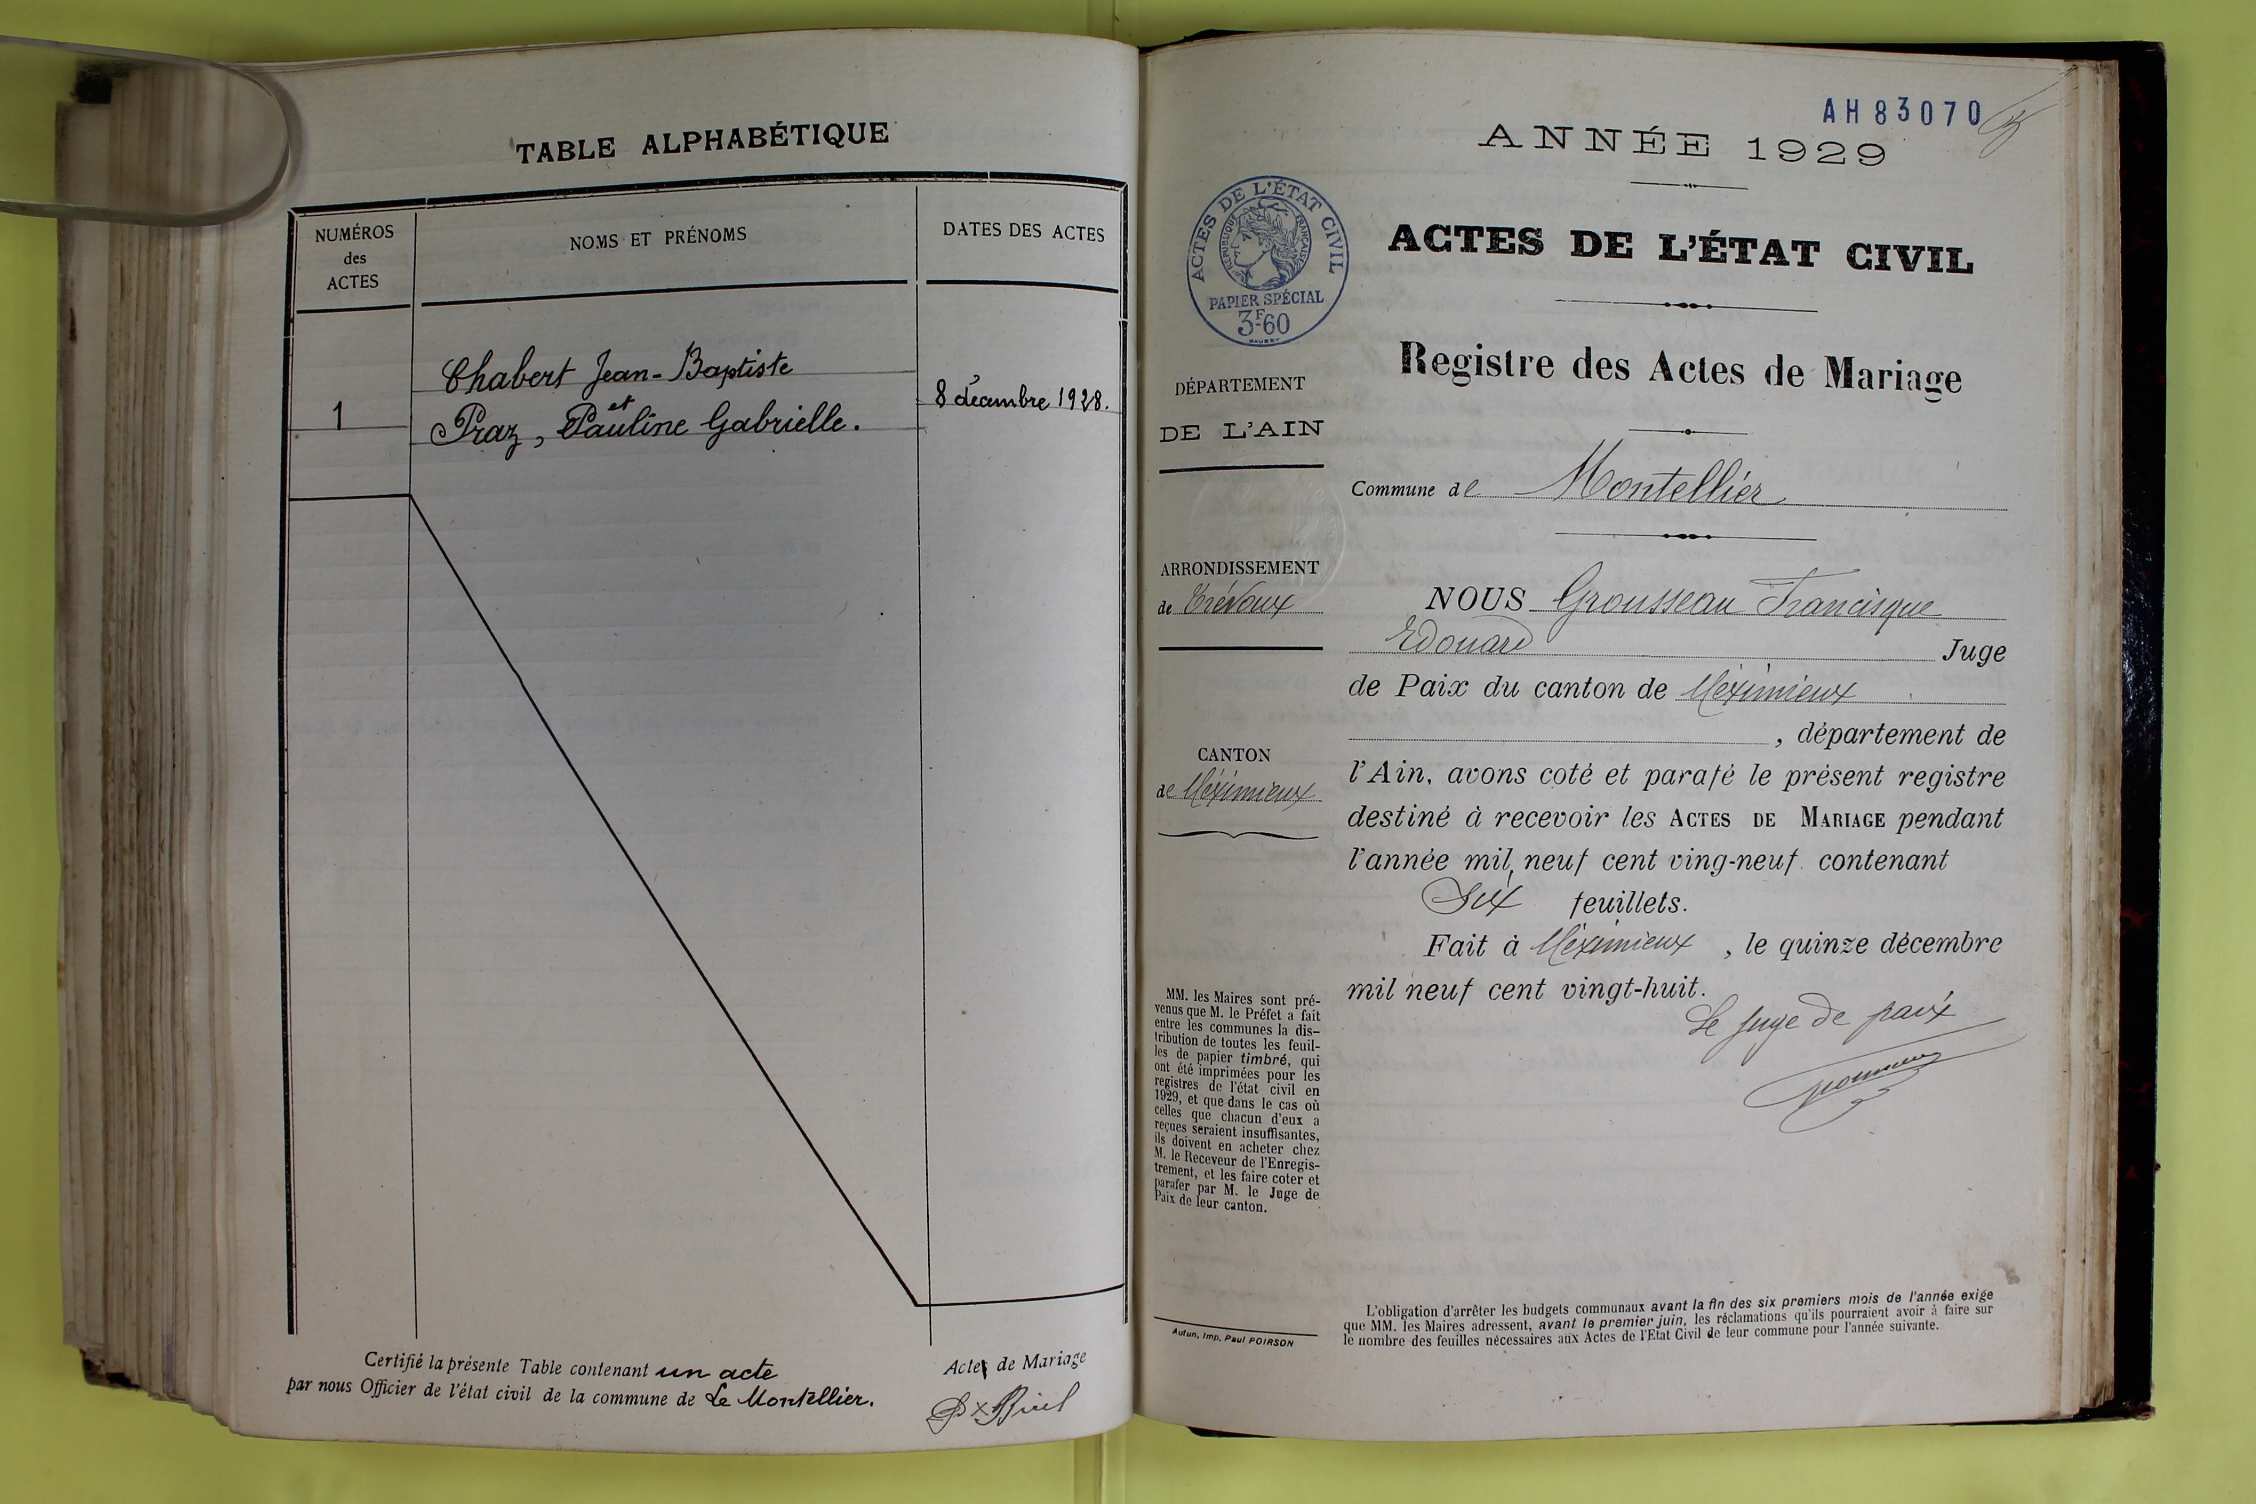 TABLE ALPHABÉTIQUE
NUMÉROS
des
ACTES
NOMS ET PRÉNOMS
DATES DES ACTES
Chabert Jean-Baptiste
et
1
Praz, Pauline Gabrielle.
8 décembre 1928.
Certifié la présente Table contenant un acte
Acte de Mariage
par nous Officier de l'état civil de la commune de Le Montellier.
AH83070
ANNÉE 1929
ACTES DE L'ÉTAT CIVIL
RÉPUBLIQUE FRANÇAISE
PAPIER SPÉCIAL
3F60
ACTES DE L'ÉTAT CIVIL
Registre des Actes de Mariage
DÉPARTEMENT
DE L'AIN
Commune de Montellier
ARRONDISSEMENT
de Trévoux
CANTON
de Méximieux
NOUS Grousseau Francisque
Edouard Juge
de Paix du canton de Méximieux
, département de
l'Ain, avons coté et parafé le présent registre
destiné à recevoir les ACTES DE MARIAGE pendant
l'année mil neuf cent ving-neuf contenant
Six feuillets.
Fait à Méximieux, le quinze décembre
mil neuf cent vingt-huit.
Le Juge de paix
MM. les Maires sont pré-
venus que M. le Préfet a fait
entre les communes la dis-
tribution de toutes les feuil-
les de papier timbré, qui
ont été imprimées pour les
registres de l'état civil en
1929, et que dans le cas où
celles que chacun d'eux a
reçues seraient insuffisantes,
ils doivent en acheter chez
M. le Receveur de l'Enregis-
trement, et les faire coter et
parafer par M. le Juge de
Paix de leur canton.
Autun, Imp. Paul POIRSON
L'obligation d'arrêter les budgets communaux avant la fin des six premiers mois de l'année exige
que MM. les Maires adressent, avant le premier juin, les réclamations qu'ils pourraient avoir à faire sur
le nombre des feuilles nécessaires aux Actes de l'Etat Civil de leur commune pour l'année suivante.